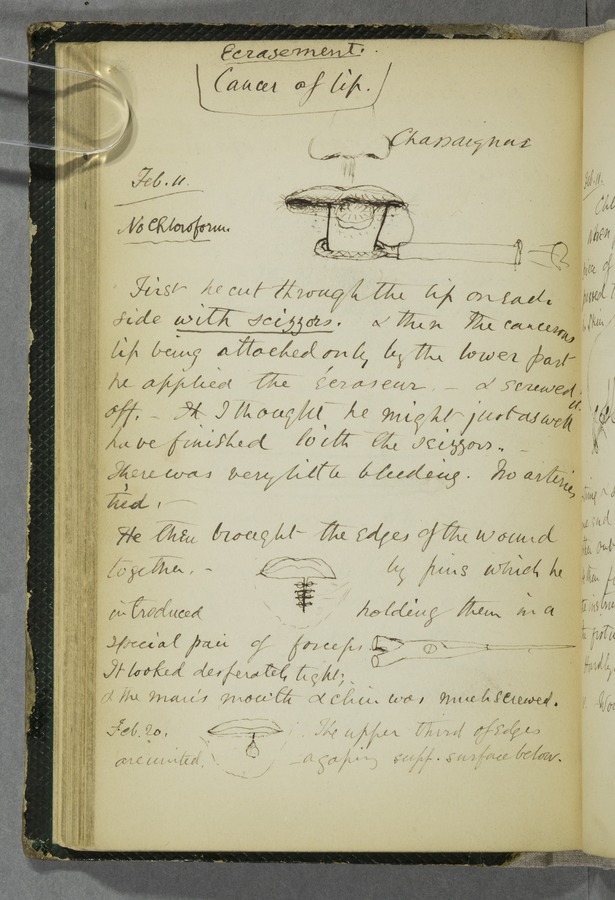 Ecrasement.
Cancer of lip.
Chassaignac
Feb. 11.
No Chloroform.
First he cut through the lip on each
side with scizzors. & then the cancerous
lip being attached only by the lower part
he applied the Écraseur. – & screwed it
off. – I thought he might just as well
have finished with the scizzors. –
There was very little bleeding. No arteries
tied. –
He then brought the edges of the wound
together. – by pins which he
introduced holding them in a
special pair of forceps.
It looked desperately tight;
& the man's mouth & chin was much screwed.
Feb. 20. The upper third of edges
are united. – a gaping supp. surface below.
Feb. 11.